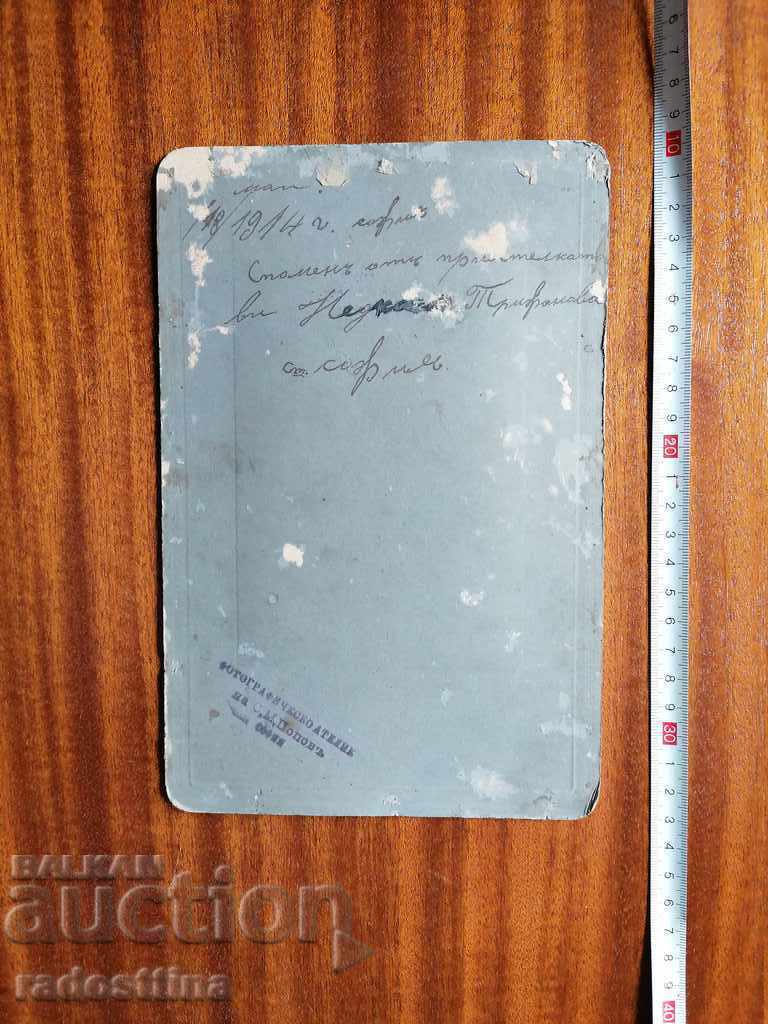 май.
18/1914 г. софиѣ
Споменъ отъ приятелката
ви Недка Трифонова
с. софиѣ.
ФОТОГРАФИЧЕСКО АТЕЛИЕ
на С. М. Поповъ
СОФИЯ
BALKAN
auction
radosttina
6 7 8 9 10 1 2 3 4 5 6 7 8 9 20 1 2 3 4 5 6 7 8 9 30 1 2 3 4 5 6 7 8 9 40